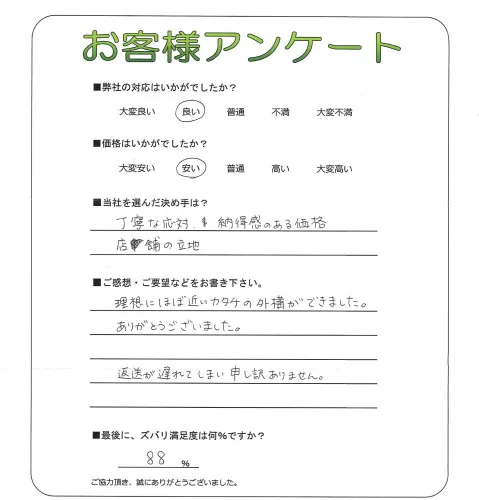 お客様アンケート
■弊社の対応はいかがでしたか？
大変良い 良い 普通 不満 大変不満
■価格はいかがでしたか？
大変安い 安い 普通 高い 大変高い
■当社を選んだ決め手は？
丁寧な応対、 納得感のある価格
店舗の立地
■ご感想・ご要望などをお書き下さい。
理想にほぼ近いカタチの外構ができました。
ありがとうございました。
返送が遅れてしまい申し訳ありません。
■最後に、ズバリ満足度は何％ですか？
88 ％
ご協力頂き、誠にありがとうございました。